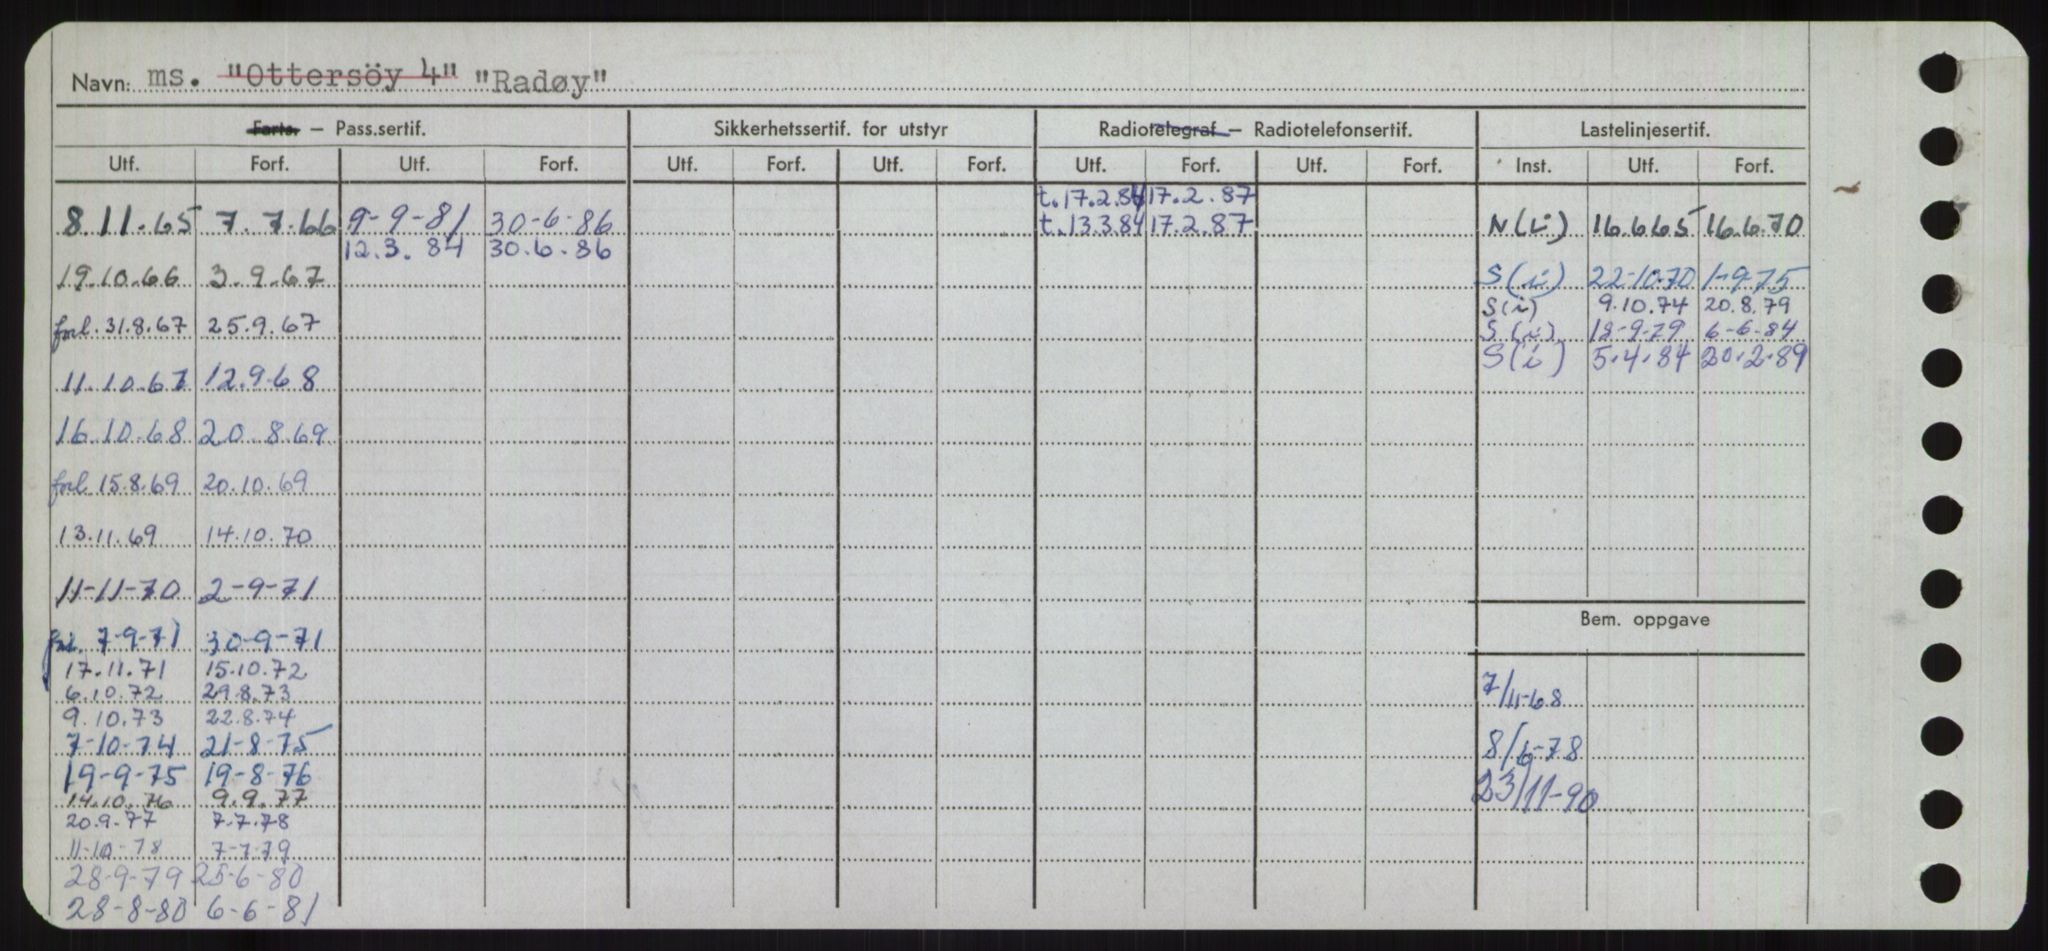 Navn: ms. "Ottersöy 4" "Radøy"
Farts. – Pass.sertif. Sikkerhetssertif. for utstyr Radiotelegraf – Radiotelefonsertif. Lastelinjesertif.
Utf. Forf. Utf. Forf. Utf. Forf. Utf. Forf. Utf. Forf. Utf. Forf. Inst. Utf. Forf.
t.17.2.84 17.2.87
8.11.65 7.7.66 9-9-81 30-6-86 t.13.3.84 17.2.87 N(i) 16.6.65 16.6.70
12.3.84 30.6.86
19.10.66 3.9.67 S(i) 22-10-70 1-9-75
S(i) 9.10.74 20.8.79
forl. 31.8.67 25.9.67 S(i) 18-9-79 6-6-84
S(i) 5.4.84 20.2.89
11.10.67 12.9.68
16.10.68 20.8.69
forl 15.8.69 20.10.69
13.11.69 14.10.70
11-11-70 2-9-71
Bem. oppgave
forl. 7-9-71 30-9-71
17.11.71 15.10.72
6.10.72 29.8.73 7/11-68
9.10.73 22.8.74
7-10-74 21-8-75 8/6-78
19-9-75 19-8-76
14.10.76 9.9.77 23/11-90
20.9.77 7.7.78
11-10-78 7-7-79
28-9-79 25-6-80
28-8-80 6-6-81